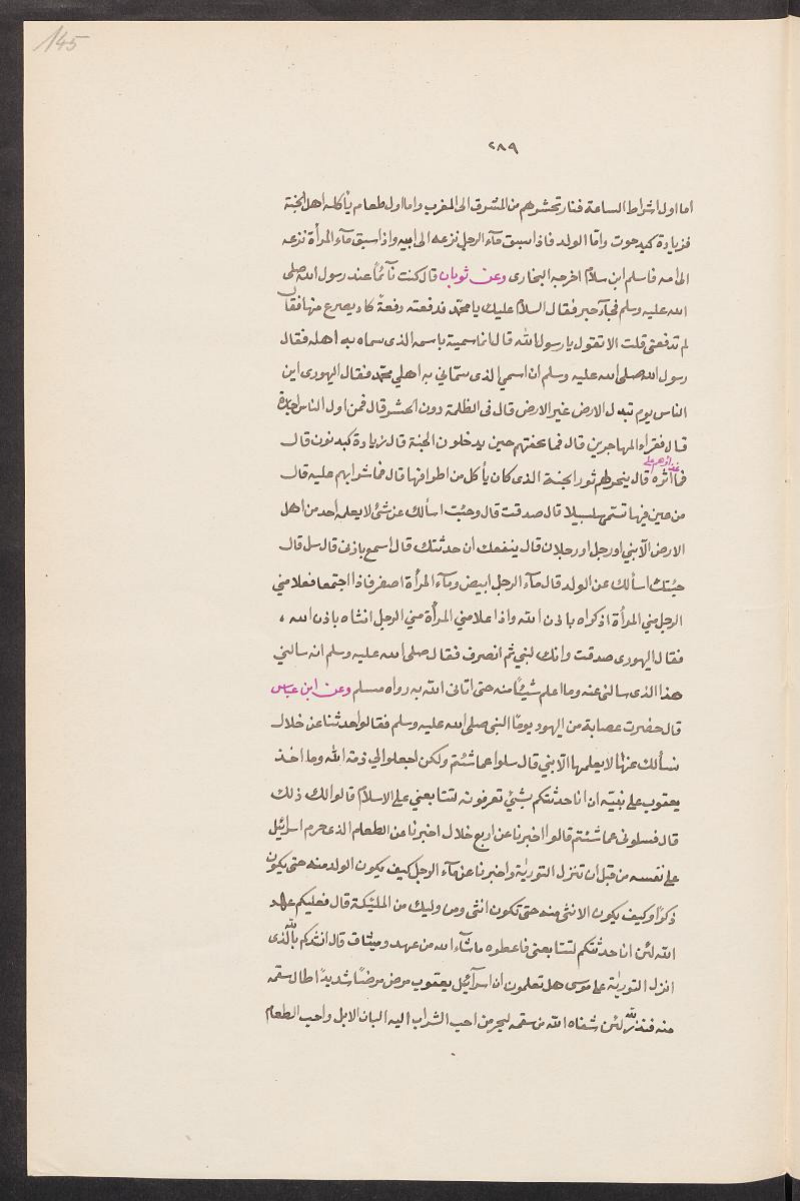 145
٢٨٩
اما اول اشراط الساعة فنار تحشرهم من المشرق الى المغرب واما اول طعام يأكله اهل الجنة
فزيادة كبد حوت واما الولد فاذا سبق مآء الرجل نزعه الى ابيه واذا سبق مآء المرأة نزعه
الى امه فاسلم ابن سلام اخرجه البخارى وعن ثوبان قال كنت نآئماً عند رسول الله صلى
الله عليه وسلم فجآء حبر فقال السلام عليك يا محمد فدفعته دفعة كاد يصرع منها فقال
لم تدفعنى قلت الا تقول يا رسول الله قال انا سمية باسمه الذى سماه به اهله فقال
رسول الله صلى الله عليه وسلم ان اسمي الذى سمّاني به اهلي محمد فقال اليهودى اين
الناس يوم تبدل الارض غير الارض قال فى الظلمة دون الحشر قال فمن اول الناس اجازة
قال فقراء المهاجرين قال فما تحفتهم حين يدخلون الجنة قال زيادة كبد نون قال
غذاؤهم على
فما اثره قال ينحر لهم ثور الجنة الذى كان يأكل من اطرافها قال فما شرابهم عليه قال
من عين فيها تسمى سلسبيلا قال صدقت قال وجئت اسألك عن شئ لا يعلمه احد من اهل
الارض الا نبي او رجل او رجلان قال ينفعك ان حدثتك قال اسمع باذنى قال سل قال
جئتك اسألك عن الولد قال مآء الرجل ابيض ومآء المرأة اصفر فاذا اجتمعا فعلا مني
الرجل مني المرأة اذكراه باذن الله واذا علا مني المرأة مني الرجل انثاه باذن الله ،
فقال اليهودى صدقت وانك لنبي ثم انصرف فقال صلى الله عليه وسلم انه سالني
هذا الذى سالنى عنه وما اعلم شيئاً منه حتى اتانى الله به رواه مسلم وعن ابن عباس
قال حضرت عصابة من اليهود يومًا النبي صلى الله عليه وسلم فقالوا حدثنا عن خلال
نسألك عنها لا يعلمها الا نبي قال سلوا عما شئتم ولكن اجعلوا لي ذمة الله وما اخذ
يعقوب على نبيه ان انا حدثتكم بشئ تعرفونه لتتابعني على الاسلام قالوا لك ذلك
قال فسلونى عما شئتم قالوا اخبرنا عن اربع خلال اخبرنا عن الطعام الذى حرم اسرائيل
على نفسه من قبل ان تنزل التورية واخبرنا عن مآء الرجل كيف يكون الولد منه حتى يكون
ذكرًا وكيف يكون الانثى منه حتى تكون انثى ومن وليك من المليكة قال فعليكم عهد
الله لئن انا حدثتكم لتتابعنى فاعطوه ما شآء الله من عهد وميثاق قال انشدكم بالله الذى
انزل التورية على موسى هل تعلمون ان اسرآئيل يعقوب مرض مرضًا شديدًا طال سقمه
منه فنذر لله لئن شفاه الله من سقمه ليحرمن احب الشراب اليه البان الابل واحب الطعام